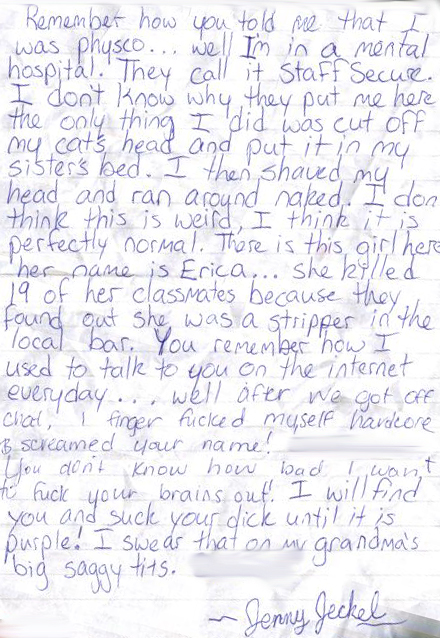 Remember how you told me that I
was physco... well I'm in a mental
hospital. They call it Staff Secure.
I don't know why they put me here
the only thing I did was cut off
my cat's head and put it in my
sister's bed. I then shaved my
head and ran around naked. I don
think this is weird, I think it is
perfectly normal. There is this girl here
her name is Erica... she killed
19 of her classmates because they
found out she was a stripper in the
local bar. You remember how I
used to talk to you on the internet
everyday... well after we got off
chat, I finger fucked myself hardcore
& screamed your name!
You don't know how bad I want
to fuck your brains out! I will find
you and suck your dick until it is
purple! I swear that on my grandma's
big saggy tits.
~ Jenny Jeckel